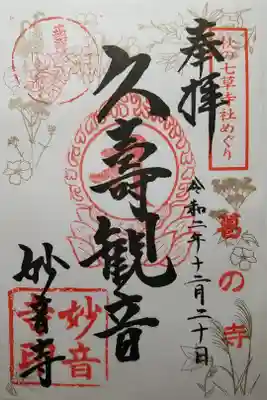 奉拝
秋の七草寺社めぐり
久壽観音
令和二年十二月二十日
葛の寺
妙音寺
妙音寺印